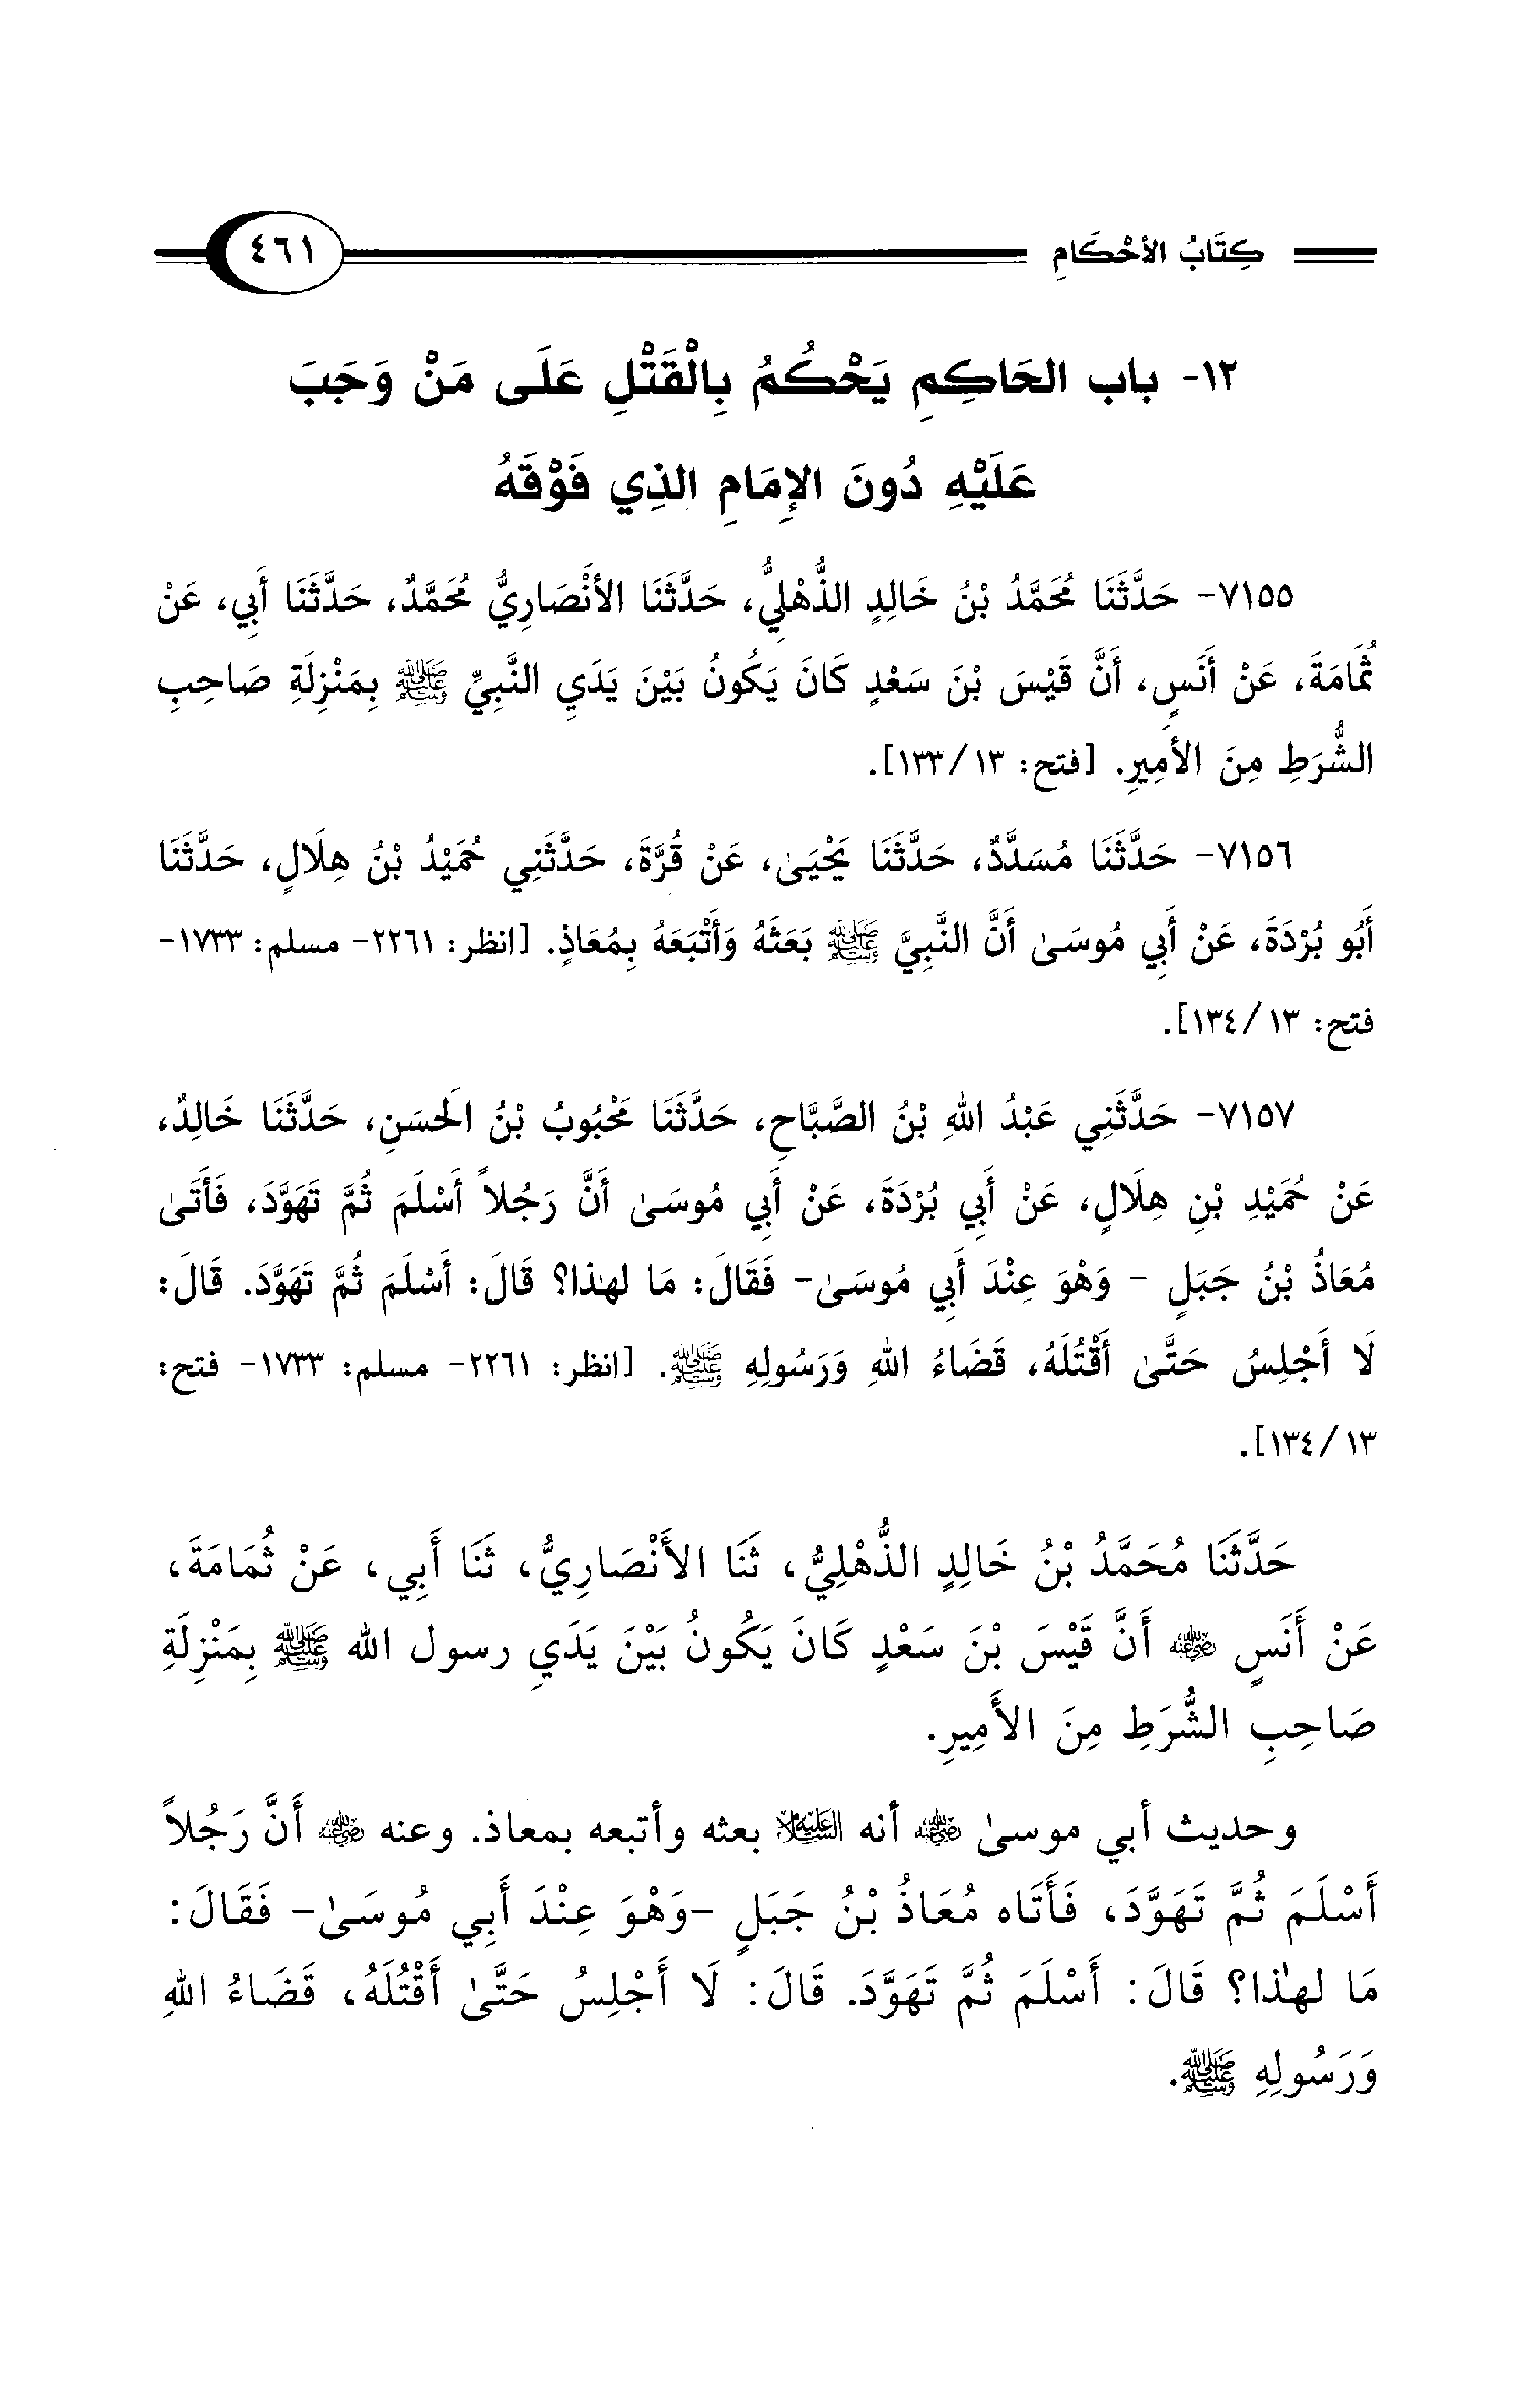 كِتَابُ الأحْكَامِ ٤٦١
١٢- باب الحَاكِمِ يَحْكُمُ بِالْقَتْلِ عَلَى مَنْ وَجَبَ
عَلَيْهِ دُونَ الإِمَامِ الذِي فَوْقَهُ
٧١٥٥- حَدَّثَنَا مُحَمَّدُ بْنُ خَالِدٍ الذُّهْلِيُّ، حَدَّثَنَا الأَنْصَارِيُّ مُحَمَّدٌ، حَدَّثَنَا أَبِي، عَنْ
ثُمَامَةَ، عَنْ أَنَسٍ، أَنَّ قَيْسَ بْنَ سَعْدٍ كَانَ يَكُونُ بَيْنَ يَدَيِ النَّبِيِّ ﷺ بِمَنْزِلَةِ صَاحِبِ
الشُّرَطِ مِنَ الأَمِيرِ. [فتح: ١٣/ ١٣٣].
٧١٥٦- حَدَّثَنَا مُسَدَّدٌ، حَدَّثَنَا يَحْيَىٰ، عَنْ قُرَّةَ، حَدَّثَنِي حُمَيْدُ بْنُ هِلَالٍ، حَدَّثَنَا
أَبُو بُرْدَةَ، عَنْ أَبِي مُوسَىٰ أَنَّ النَّبِيَّ ﷺ بَعَثَهُ وَأَتْبَعَهُ بِمُعَاذٍ. [انظر: ٢٢٦١- مسلم: ١٧٣٣-
فتح: ١٣/ ١٣٤].
٧١٥٧- حَدَّثَنِي عَبْدُ اللهِ بْنُ الصَّبَّاحِ، حَدَّثَنَا مَحْبُوبُ بْنُ الَحسَنِ، حَدَّثَنَا خَالِدٌ،
عَنْ حُمَيْدِ بْنِ هِلَالٍ، عَنْ أَبِي بُرْدَةَ، عَنْ أَبِي مُوسَىٰ أَنَّ رَجُلاً أَسْلَمَ ثُمَّ تَهَوَّدَ، فَأَتَىٰ
مُعَاذُ بْنُ جَبَلٍ - وَهْوَ عِنْدَ أَبِي مُوسَىٰ- فَقَالَ: مَا لهٰذا؟ قَالَ: أَسْلَمَ ثُمَّ تَهَوَّدَ. قَالَ:
لَا أَجْلِسُ حَتَّىٰ أَقْتُلَهُ، قَضَاءُ اللهِ وَرَسُولِهِ ﷺ. [انظر: ٢٢٦١- مسلم: ١٧٣٣- فتح:
١٣/ ١٣٤].
حَدَّثَنَا مُحَمَّدُ بْنُ خَالِدٍ الذُّهْلِيُّ، ثَنَا الأَنْصَارِيُّ، ثَنَا أَبِي، عَنْ ثُمَامَةَ،
عَنْ أَنَسٍ رضي الله عنه أَنَّ قَيْسَ بْنَ سَعْدٍ كَانَ يَكُونُ بَيْنَ يَدَيِ رسول الله ﷺ بِمَنْزِلَةِ
صَاحِبِ الشُّرَطِ مِنَ الأَمِيرِ.
وحديث أبي موسىٰ رضي الله عنه أنه عليه السلام بعثه وأتبعه بمعاذ. وعنه رضي الله عنه أَنَّ رَجُلاً
أَسْلَمَ ثُمَّ تَهَوَّدَ، فَأَتَاه مُعَاذُ بْنُ جَبَلٍ -وَهْوَ عِنْدَ أَبِي مُوسَىٰ- فَقَالَ:
مَا لهٰذا؟ قَالَ: أَسْلَمَ ثُمَّ تَهَوَّدَ. قَالَ: لَا أَجْلِسُ حَتَّىٰ أَقْتُلَهُ، قَضَاءُ اللهِ
وَرَسُولِهِ ﷺ.